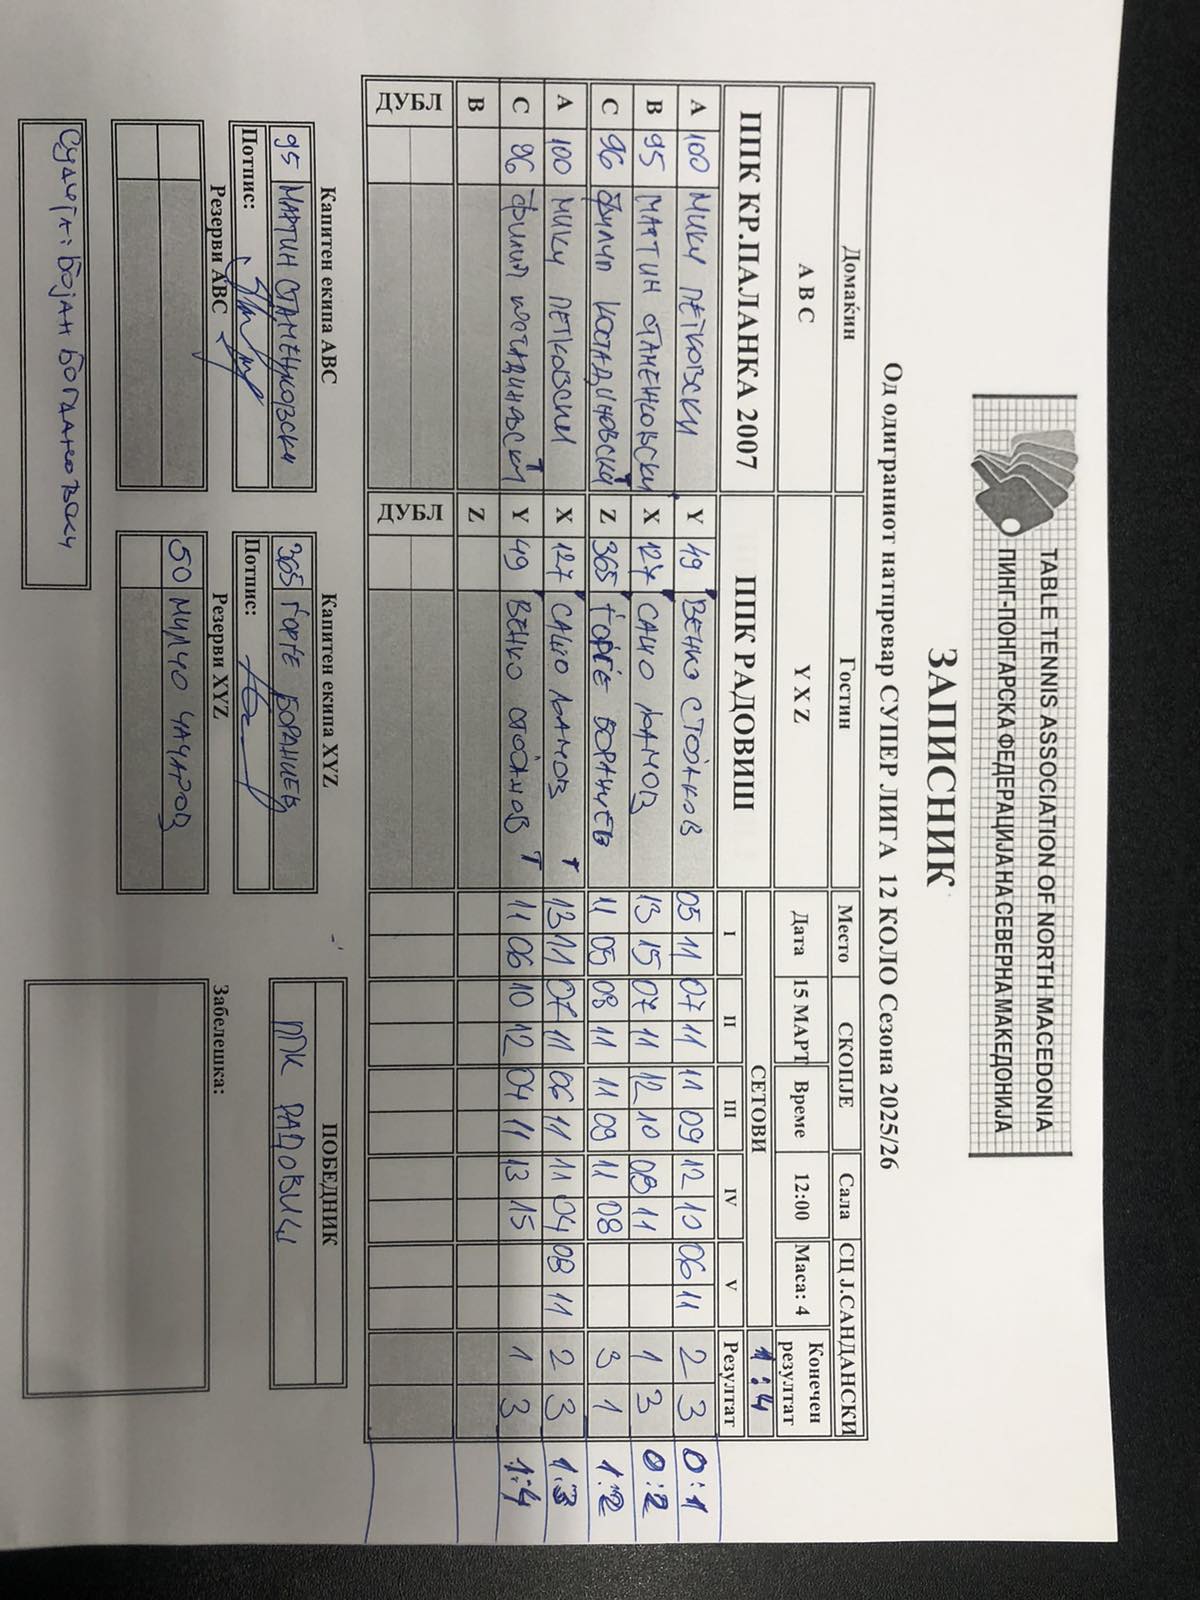 TABLE TENNIS ASSOCIATION OF NORTH MACEDONIA
ПИНГ-ПОНГАРСКА ФЕДЕРАЦИЈА НА СЕВЕРНА МАКЕДОНИЈА
ЗАПИСНИК
Од одиграниот натпревар СУПЕР ЛИГА 12 КОЛО Сезона 2025/26
Домаќин Гостин Место СКОПЈЕ Сала СЦ Ј.САНДАНСКИ
A B C Y X Z Дата 15 МАРТ Време 12:00 Маса: 4 Конечен резултат
ППК КР.ПАЛАНКА 2007 ППК РАДОВИШ СЕТОВИ 1:4
I II III IV V Резултат
A 100 МИКИ ПЕТКОВСКИ Y 49 ВЕНКО СТОЈКОВ 05 11 07 11 11 09 12 10 06 11 2 3 0:1
B 95 МАРТИН СТАМЕНКОВСКИ X 127 САШО ЛАМОВ 13 15 07 11 12 10 08 11 1 3 0:2
C 96 ФИЛИП КОСТАДИНОВСКИ Z 365 ЃОРЃЕ БОРАНИЕВ 11 05 08 11 11 09 11 08 3 1 1:2
A 100 МИКИ ПЕТКОВСКИ X 127 САШО ЛАМОВ Т 13 11 07 11 06 11 11 04 08 11 2 3 1:3
C 96 ФИЛИП Y 49 ВЕНКО Т 11 06 10 12 04 11 13 15 1 3 1:4
B Z
ДУБЛ ДУБЛ
Капитен екипа ABC Капитен екипа XYZ ПОБЕДНИК
95 МАРТИН СТАМЕНКОВСКИ 365 ЃОРЃЕ БОРАНИЕВ ППК РАДОВИШ
Потпис: Потпис:
Резерви ABC Резерви XYZ Забелешка:
50 МИЛЧО ЧАЧАРОВ
Судија: Бојан Богдановски